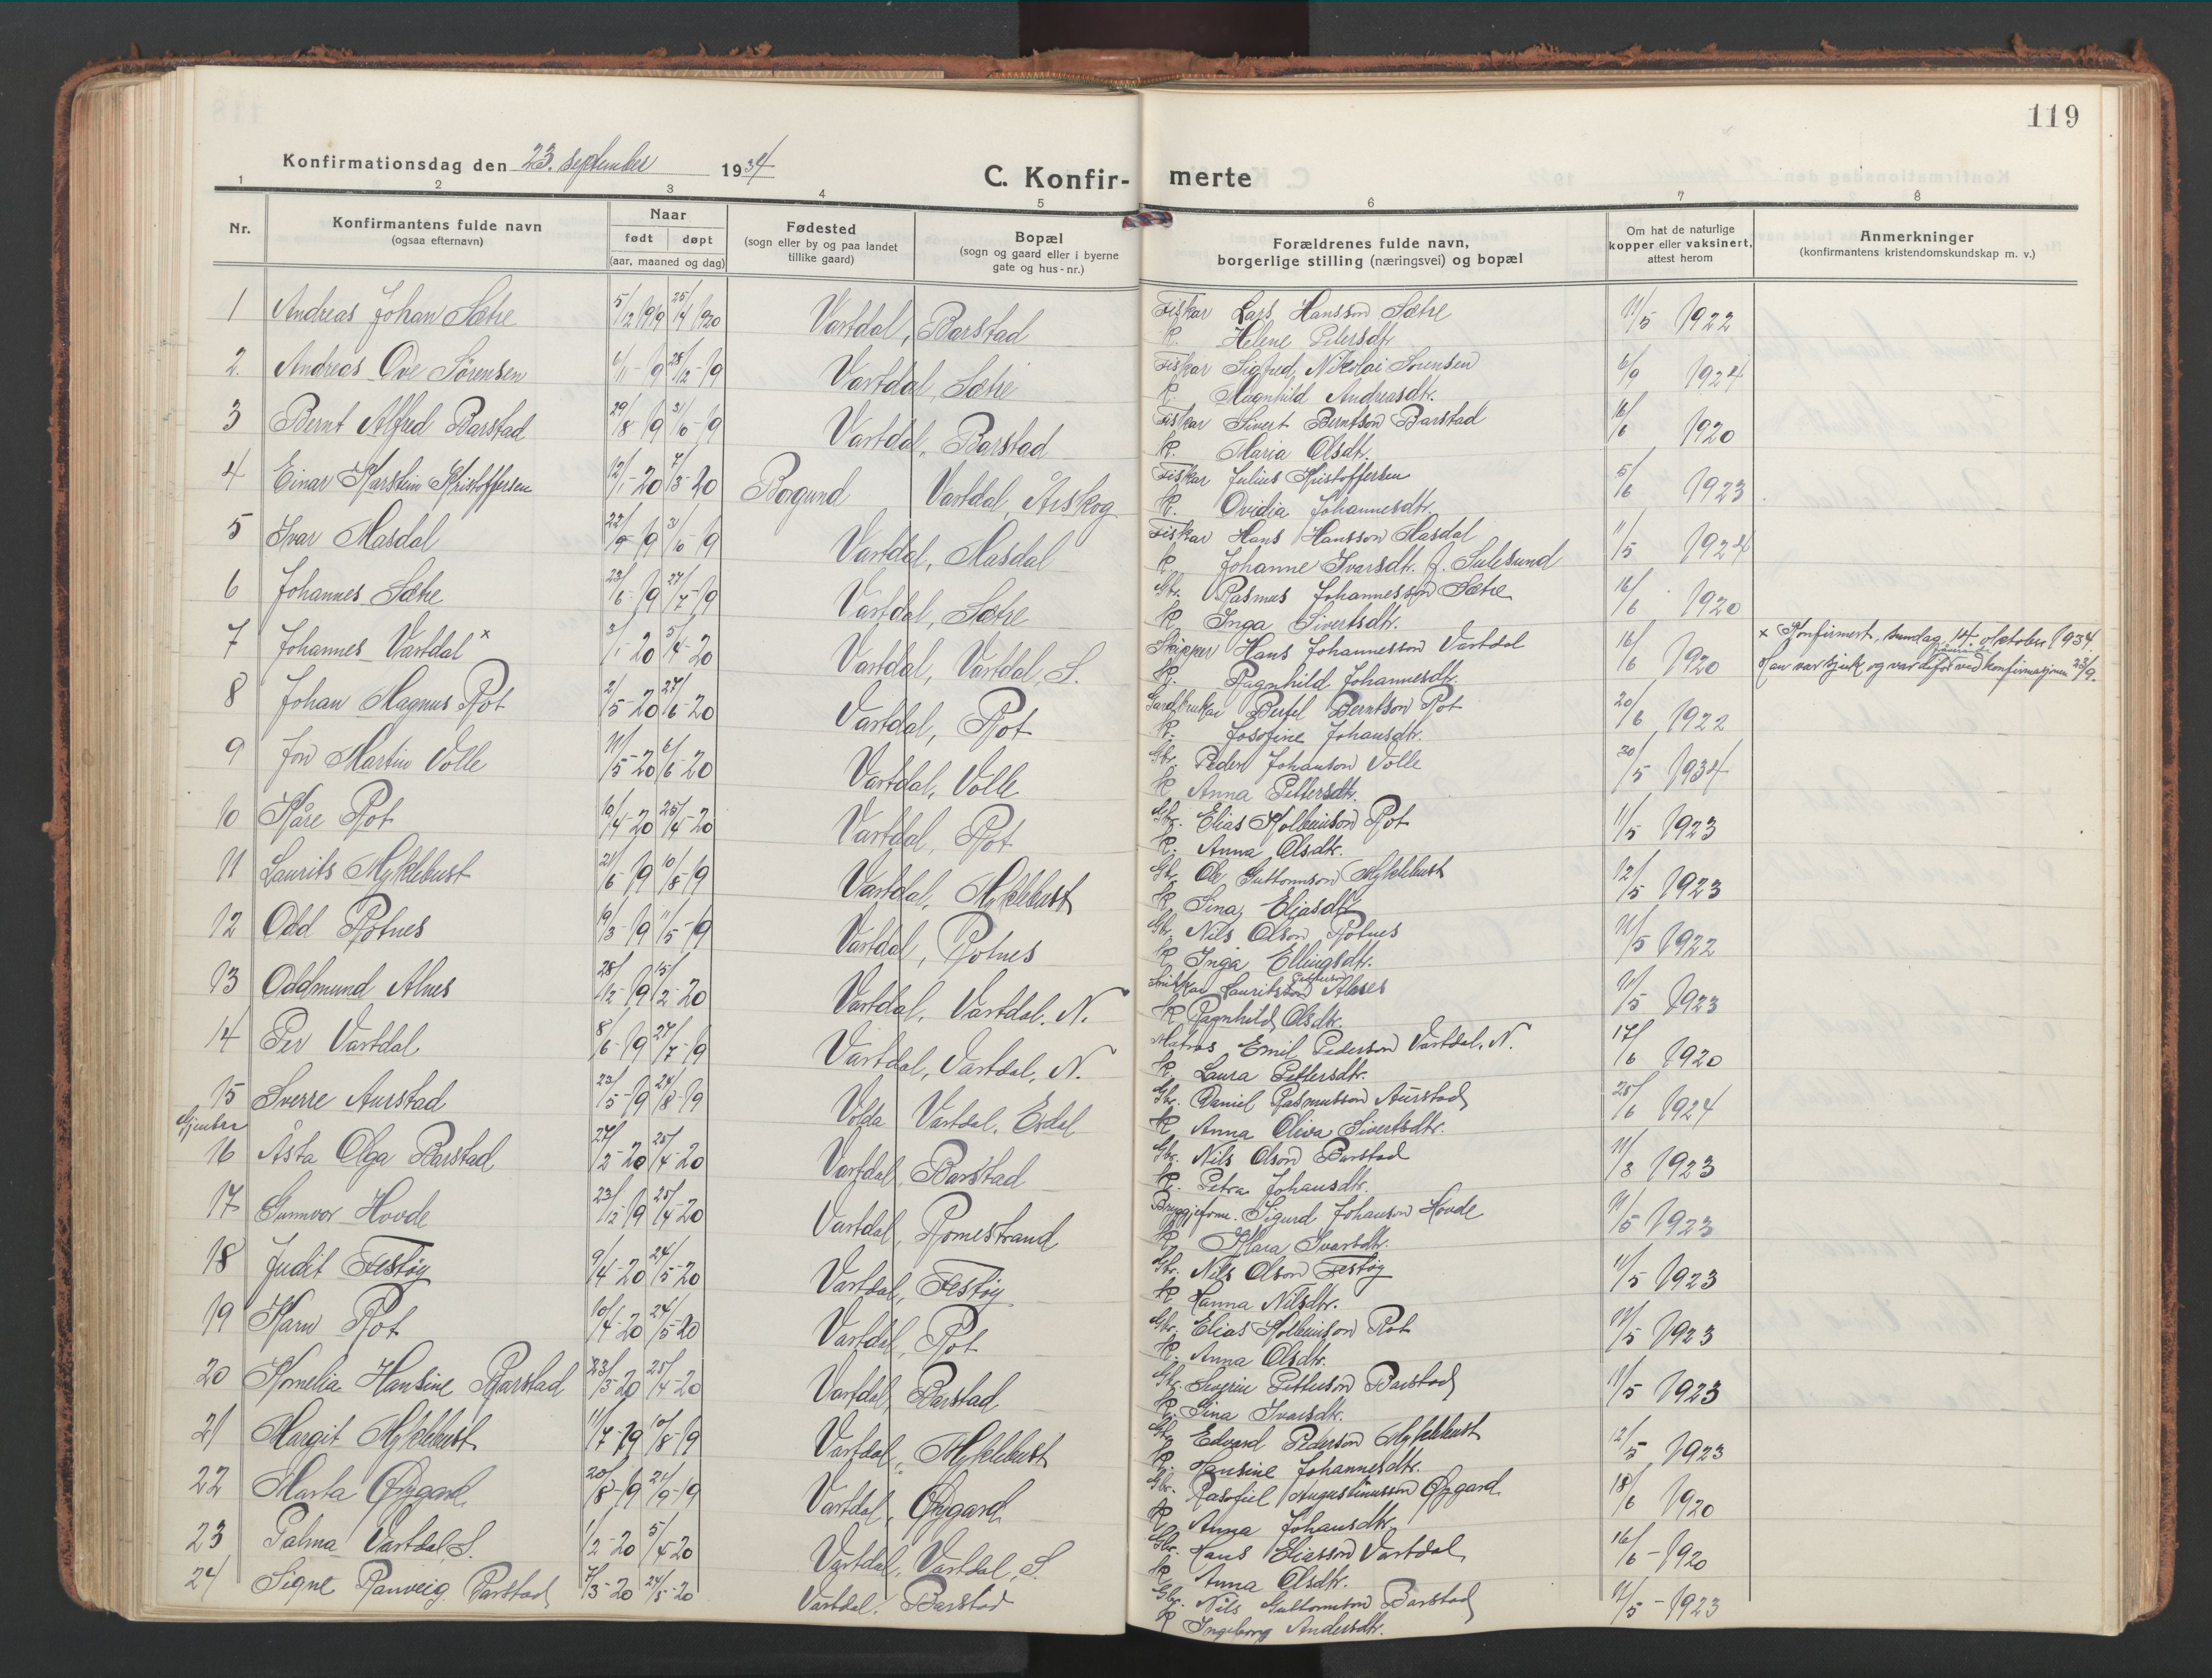 119
Konfirmationsdag den 23. september 1934
C. Konfir- merte
1 2 3 4 5 6 7 8
Nr. Konfirmantens fulde navn (ogsaa efternavn) Naar født døpt (aar, maaned og dag) Fødested (sogn eller by og paa landet tillike gaard) Bopæl (sogn og gaard eller i byerne gate og hus-nr.) Forældrenes fulde navn, borgerlige stilling (næringsvei) og bopæl Om hat de naturlige kopper eller vaksinert, attest herom Anmerkninger (konfirmantens kristendomskundskap m. v.)
1 Andreas Johan Sætre 5/12 1919 25/4 1920 Vartdal, Barstad Fiskar Lars Hansson Sætre 11/5 1922
k. Helene Petersdtr.
2. Andreas Ove Sørensen 6/11-19 28/12-19 Vartdal, Sætre Fiskar Sigfred Nikolai Sørensen 6/9 1924
k. Magnhild Andreasdtr.
3 Bernt Alfred Barstad 29/8 19 31/10-19 Vartdal, Barstad Fiskar Sivert Berntson Barstad 16/6 1920
k. Maria Olsdtr.
4 Einar Karstein Kristoffersen 12/1-20 7/3-20 Borgund Vartdal, Årskog Fiskar Julius Kristoffersen 5/6 1923
k. Ovidia Johannesdtr.
5 Ivar Masdal 22/9-19 31/10 19 Vartdal, Masdal Fiskar Hans Hansson Masdal 11/5 1924
k. Johanne Ivarsdtr. f. Sulesund
6 Johannes Sætre 23/6-19 27/7-19 Vartdal, Sætre Gbr. Rasmus Johannesson Sætre 16/6 1920
k. Inga Sivertsdtr.
7 Johannes Vartdal x 3/1-20 5/4-20 Vartdal, Vartdal, S. Skipper Hans Johannesson Vartdal 16/6 1920 x Konfirmert, sundag, 14. oktober 1934.
k. Ragnhild Johannesdtr. Han var sjuk og var difor ved konfirmasjonen 23/9.
8 Johan Magnus Rot 2/5-20 27/6-20 Vartdal, Rot Gardbrukar Bertel Berntson Rot 20/6 1922
k. Josefine Johansdtr.
9 Jon Martin Volle 11/5-20 6/6-20 Vartdal, Volle Gbr. Peder Johanson Volle 20/5 1934
k. Anna Pettersdtr.
10 Kåre Rot 10/4-20 25/4-20 Vartdal, Rot Gbr. Elias Kolbeinson Rot 11/5 1923
k. Anna Olsdtr.
11 Laurits Myklebust 21/6-19 10/8-19 Vartdal, Myklebust Gbr. Ole Guttormson Myklebust 12/5 1923
k. Sina Eliasdtr.
12 Odd Rotnes 19/3-19 11/5-19 Vartdal, Rotnes Gbr. Nils Olson Rotnes 11/5 1922
k. Inga Ellingsdtr.
13 Oddmund Alnes 28/12-19 15/2-20 Vartdal, Vartdal. N. Lauritsson Alnes 11/5 1923
k. Ragnhild Olsdtr.
14 Per Vartdal 8/6-19 27/7-19 Vartdal, Vartdal, N. Matros Emil Pederson Vartdal. N. 17/6 1920
k. Laura Pettersdtr.
15 Sverre Aurstad 23/5-19 24/8-19 Volda Vartdal, Erdal Gbr. Daniel Rasmusson Aurstad 25/6 1924
k. Anna Oliva Sivertsdtr.
Gjenter
16 Åsta Olga Barstad 27/2-20 25/4-20 Vartdal, Barstad Gbr. Nils Olson Barstad 11/3 1923
k. Petra Johansdtr.
17 Gunnvor Hovde 23/12-19 25/4-20 Vartdal, Romestrand Bryggjeform. Sigurd Johanson Hovde 11/5 1923
k. Klara Ivarsdtr.
18 Judit Festøy 9/4-20 24/5-20 Vartdal, Festøy Gbr. Nils Olson Festøy 11/5 1923
k. Hanna Nilsdtr.
19 Karen Rot 10/4-20 24/5-20 Vartdal, Rot Gbr. Elias Kolbeinson Rot 11/5 1923
k. Anna Olsdtr.
20 Kornelia Hansine Barstad 23/3-20 25/4-20 Vartdal, Barstad Gbr. Severin Petterson Barstad 11/5 1923
k. Sina Ivarsdtr.
21 Margit Myklebust 11/7-19 10/8-19 Vartdal, Myklebust Gbr. Edvard Pederson Myklebust 12/5 1923
k. Hansine Johannesdtr.
22 Marta Øygard 20/8-19 21/9-19 Vartdal, Øygard Gbr. Rasofiel Augustinusson Øygard 18/6 1920
k. Anna Johansdtr.
23 Palma Vartdal S. 1/2-20 5/4-20 Vartdal, Vartdal, S. Gbr. Hans Eliasson Vartdal 16/6-1920
k. Anna Olsdtr.
24 Signe Ranveig Barstad 7/3-20 24/5-20 Vartdal, Barstad Gbr. Nils Guttormson Barstad 11/5-1923
k. Ingeborg Andersdtr.